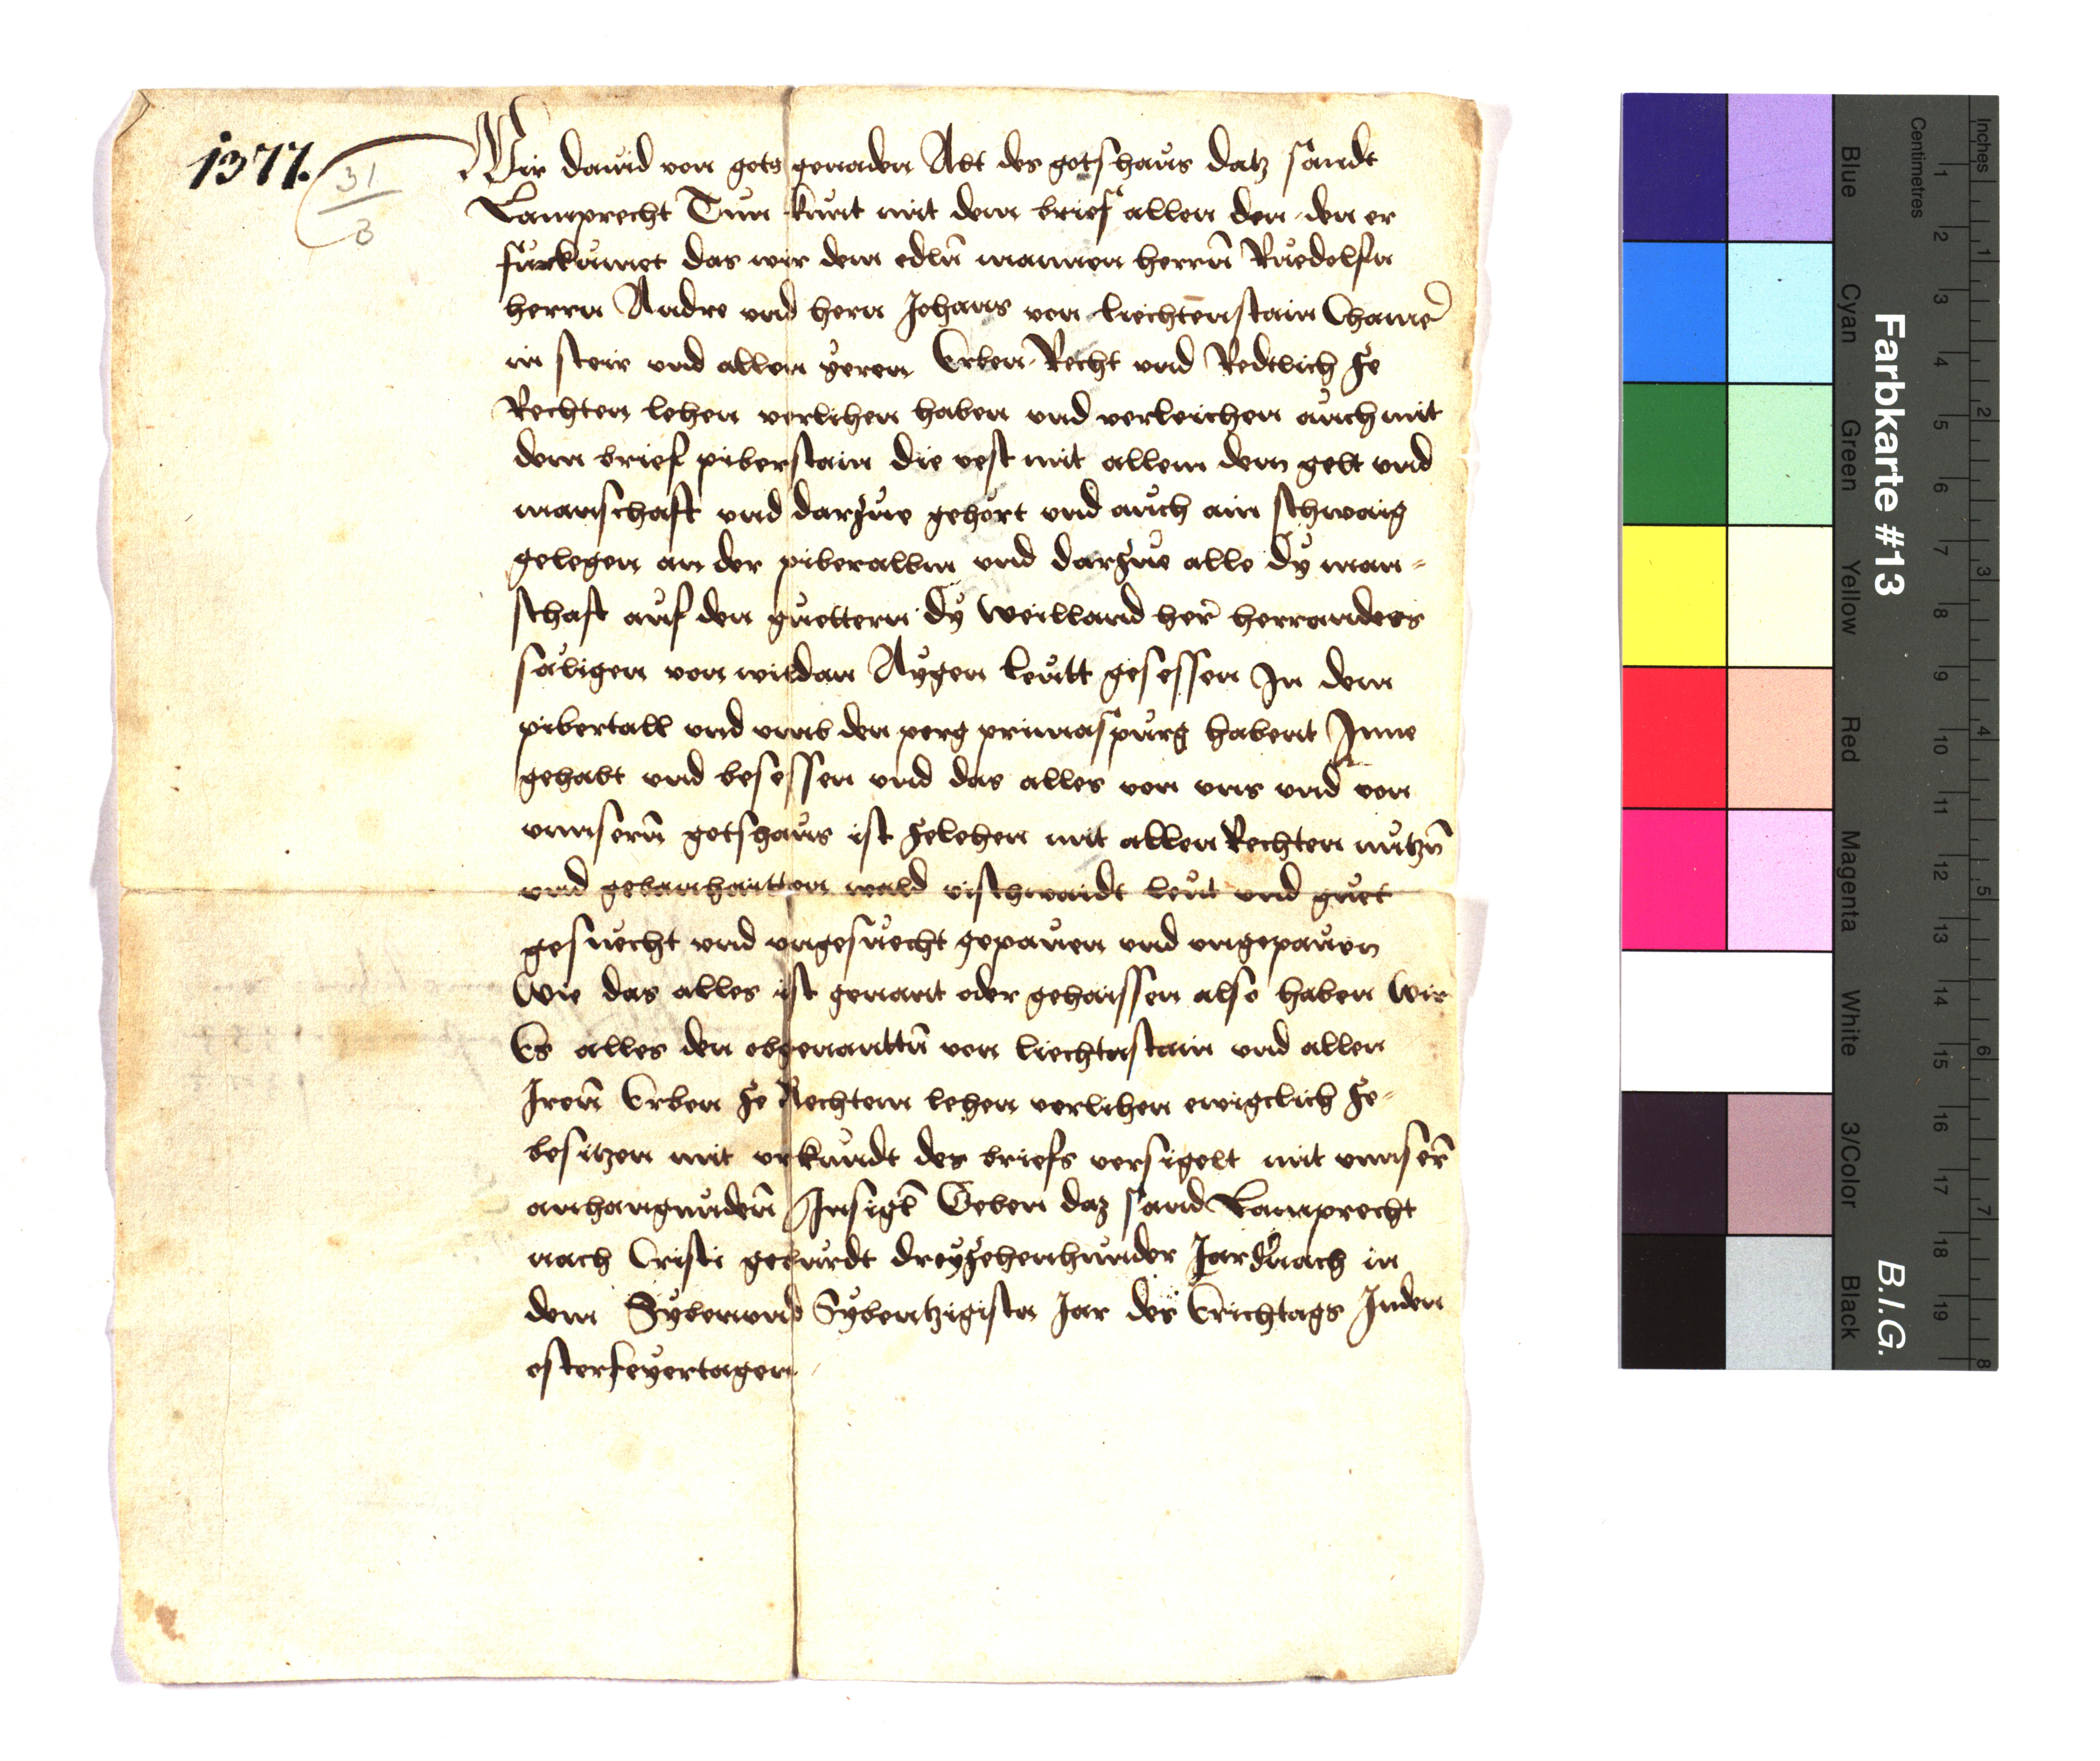 1377.
31
3
Wir dauid von gots genaden Abt des gotshaus datz sandt
Lamprecht Tun kunt mit dem brief allen den den er
fürkumet das wir dem edln̄ mannen herrn̄ Ruedolfn
herrn Andre vnd hern Johans von liechtenstain Chamer̄
in steir vnd allen yeren Erben Recht vnd Redtlich ze
Rechten lehen verlihen haben vnd verleichen auch mit
dem brief piberstain die vest mit allem dem gelt vnd
manschaft vnd darzue gehört vnd auch ain schwaig
gelegen an der piberalbm vnd darzue alle dy man-
schaft auf den guettern dy weilland her̄ herrandes
saligen von wildan Aygen leutt gesessen In dem
pibertall vnd vmb den perg primaspurg habent Inne
gehabt vnd besessen vnd das alles von vns vnd von
vnnserm̄ gotshaus ist zelehen mit allen Rechten nutzn̄
vnd gebanhaitten wald vischwaidt leut vnd guet
gesuecht vnd vngesuecht gepauen vnd vngepauen
Wie das alles ist genant oder gehaissen also haben Wir
Es alles den obgenanttn̄ von liechtnstain vnd allen
Iren̄ Erben ze Rechtem lehen verlihen ewigclich ze-
besitzen mit vrkundt des briefs versigelt mit vnnser̄
anhangunden̄ Insigl̄ Geben daz sand Lamprecht
nach Cristi geburdt dreyzehenhunder Jar dr̄nach in
dem Sybenvnd Sybentzigistn Jar des Erichtags Inden
osterfeyertagen
Farbkarte #13
B.I.G.
Blue
Cyan
Green
Yellow
Red
Magenta
White
3/Color
Black
Centimetres
Inches
1 2 3 4 5 6 7 8 9 10 11 12 13 14 15 16 17 18 19
1 2 3 4 5 6 7 8